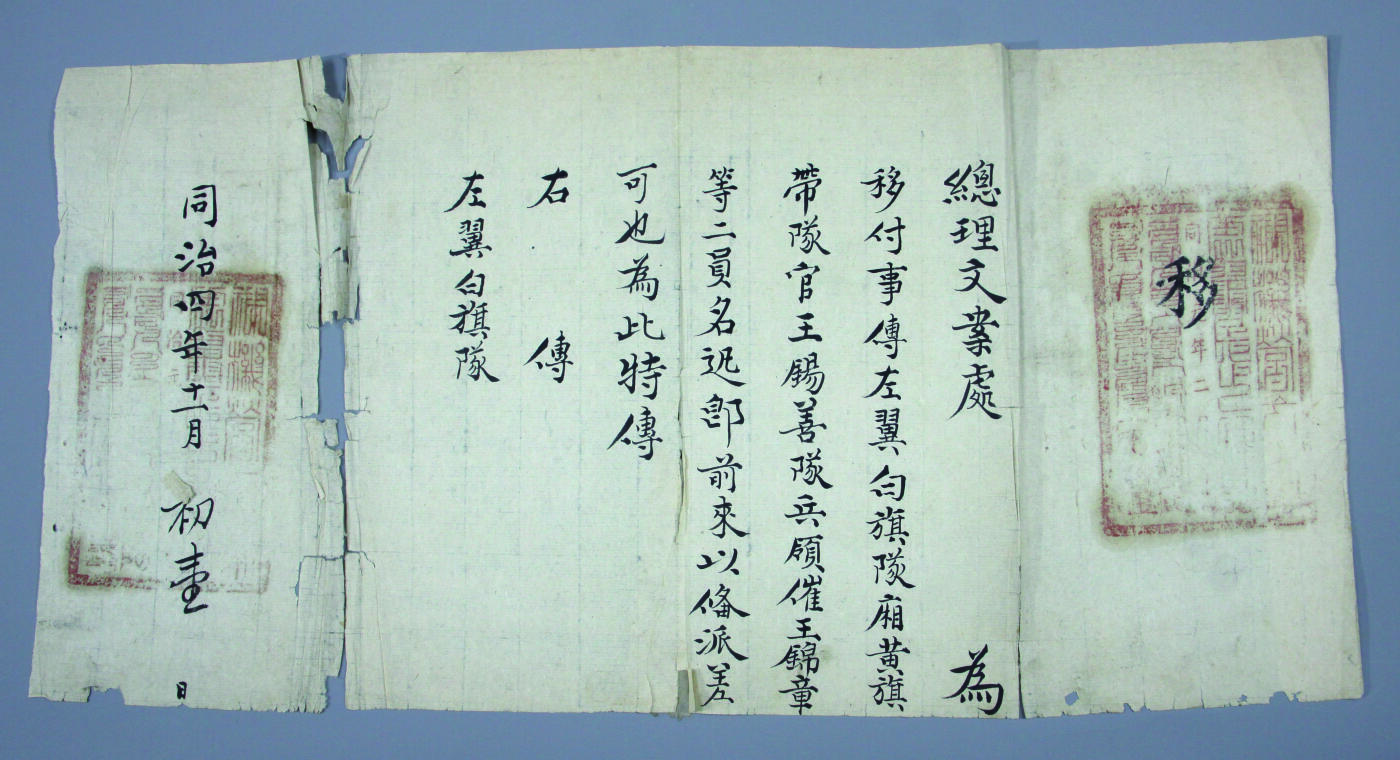 移
總理文案處 為
移付事傳左翼白旗隊廂黃旗
帶隊官王錫善隊兵領催王錦章
等二員名迅即前來以俻派差
可也為此特傳
右 傳
左翼白旗隊
同治四年十一月 初壹 日